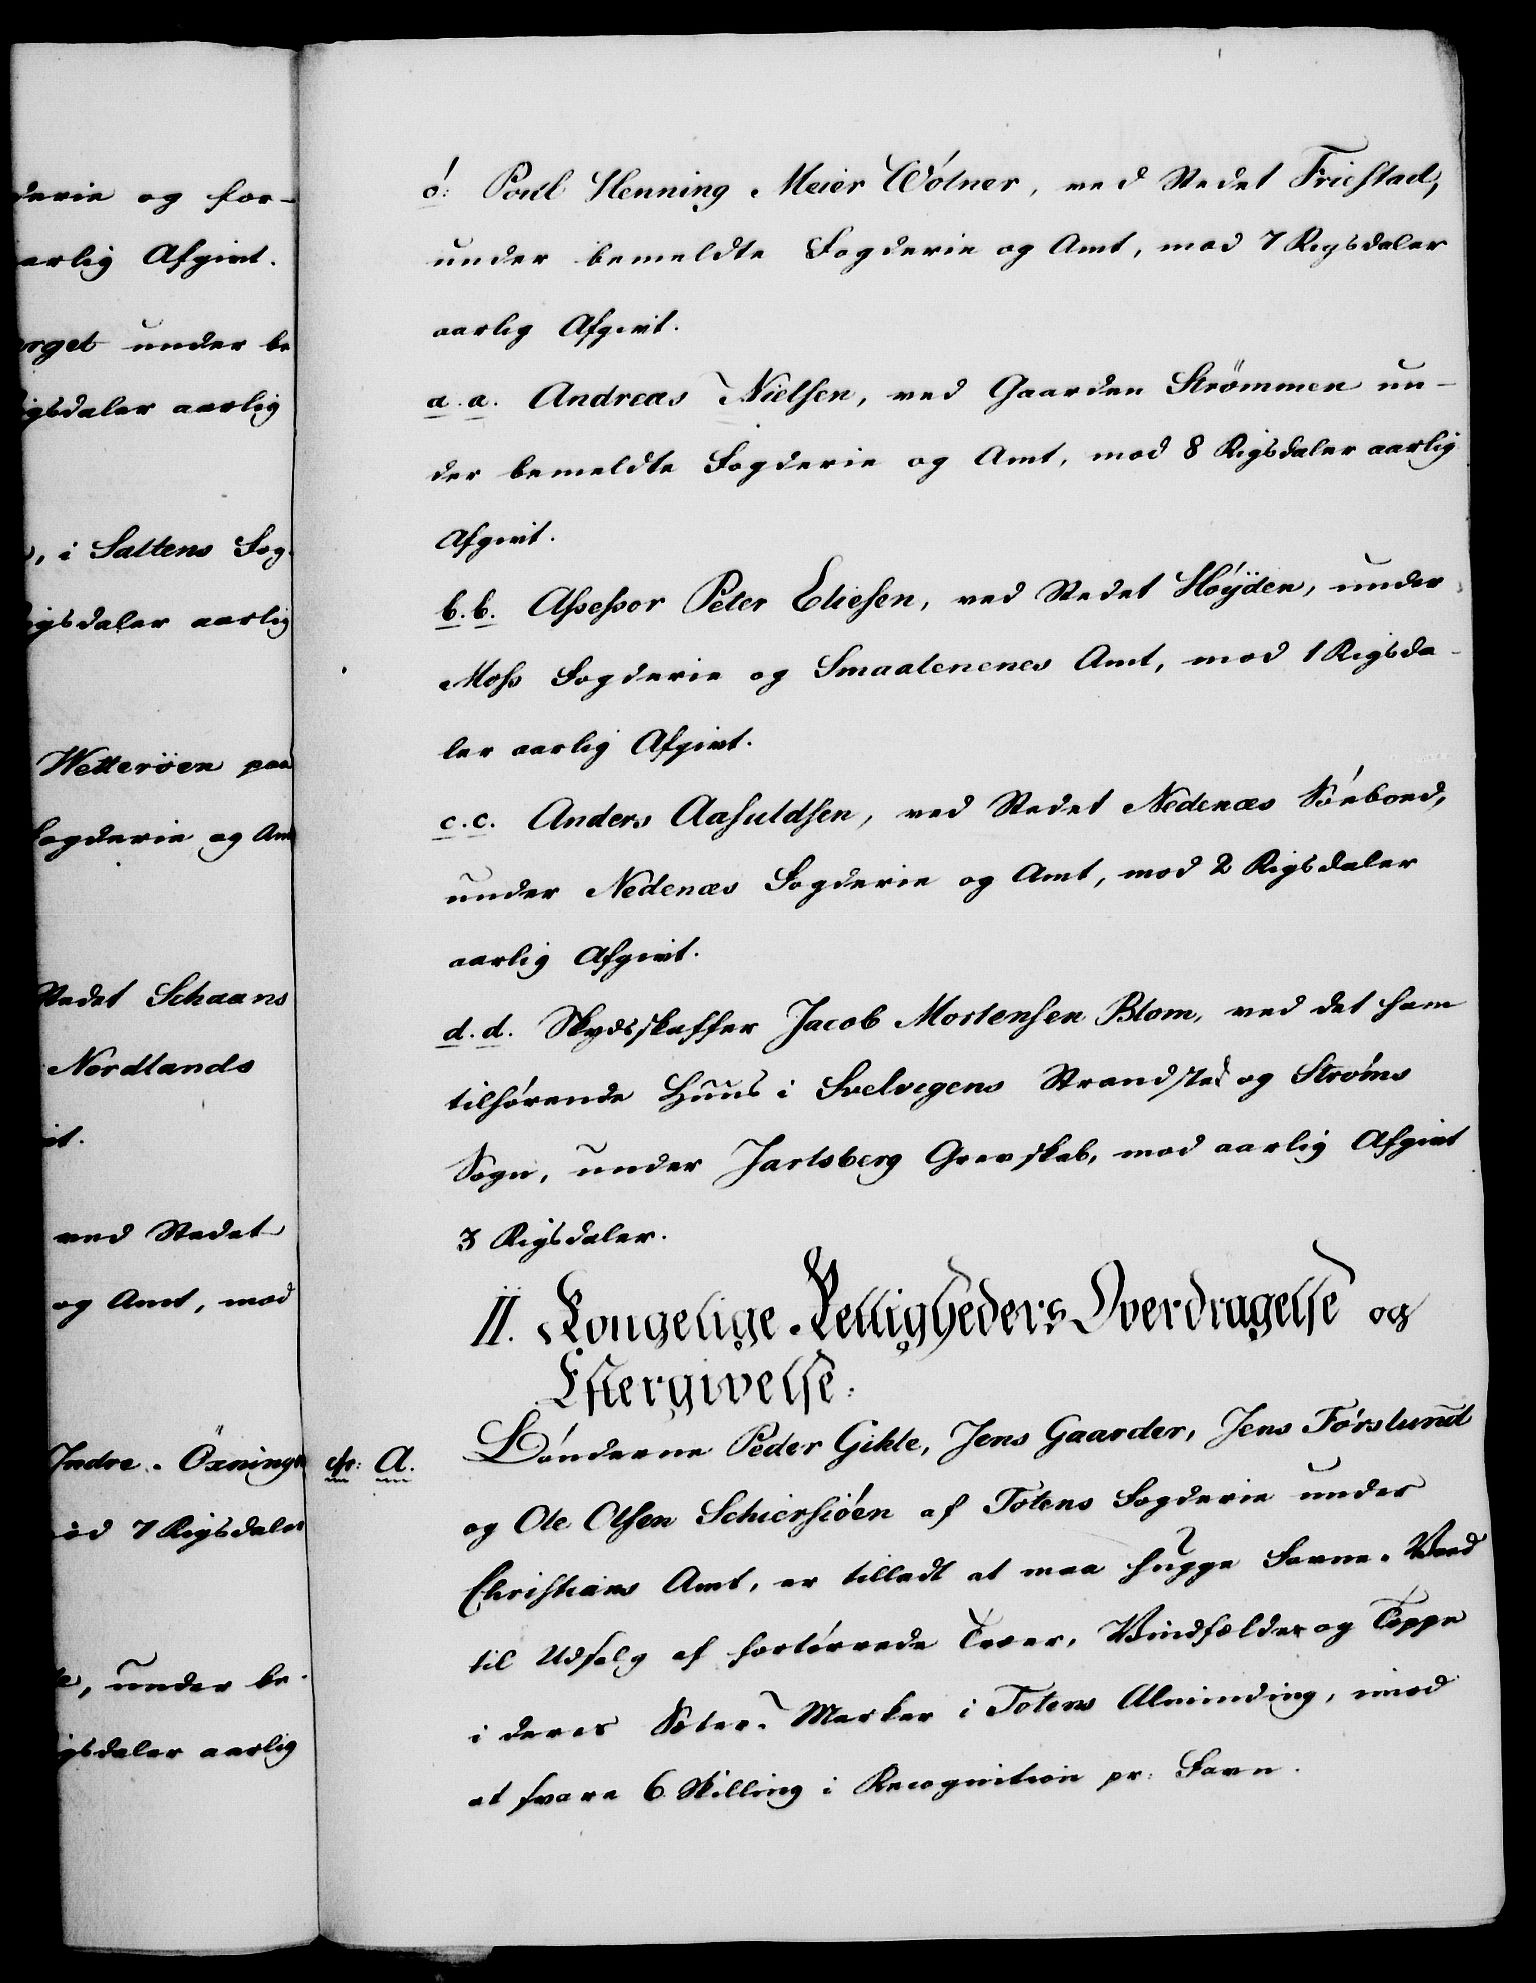 derie og for-
aarlig Afgivt.
under be
Rigsdaler aarlig
, i Saltens Fog-
Rigsdaler aarlig
Wetterøen paa
Fogderie og Amt
Stedet Schaans
Nordlands
ved Stedet
og Amt, mod
Indre-Öxning
mod 7 Rigsdaler
, under be-
Rigsdaler aarlig
ó: Poul Henning Meier Wólner, ved Stedet Friestad,
under bemeldte Fogderie og Amt, mod 7 Rigsdaler
aarlig Afgivt.
a.a. Andreas Nielsen, ved Gaarden Strömmen un-
der bemeldte Fogderie og Amt, mod 8 Rigsdaler aarlig
Afgivt.
b.b. Assessor Peter Eliesen, ved Stedet Hóÿden, under
Moss Fogderie og Smaalenenes Amt, mod 1 Rigsda-
ler aarlig Afgivt.
c.c. Anders Aasuldsen, ved Stedet Nedenæs Sóeboed,
under Nedenæs Fogderie og Amt, mod 2 Rigsdaler
aarlig Afgivt.
d.d. Skydsskaffer Jacob Mortensen Blom, ved det ham
tilhórende Huus i Svelvigens Strandsted og Stróms
Sogn, under Jarlsberg Grevskab, mod aarlig Afgivt
3 Rigsdaler.
II. Kongelige Rettigheders Overdragelse og
Eftergivelse.
cfr: A. Bónderne Peder Gihle, Jens Gaarder, Jens Fórslund
og Ole Olsen Schiersióen af Totens Fogderie under
Christians Amt, er tilladt at maa hugge Favne-Veed
til Udsalg af fortórrede Træer, Vindfælder og Toppe
i deres Sæter-Marker i Totens Alminding, imod
at svare 6 Skilling i Recognition pr: Favn.